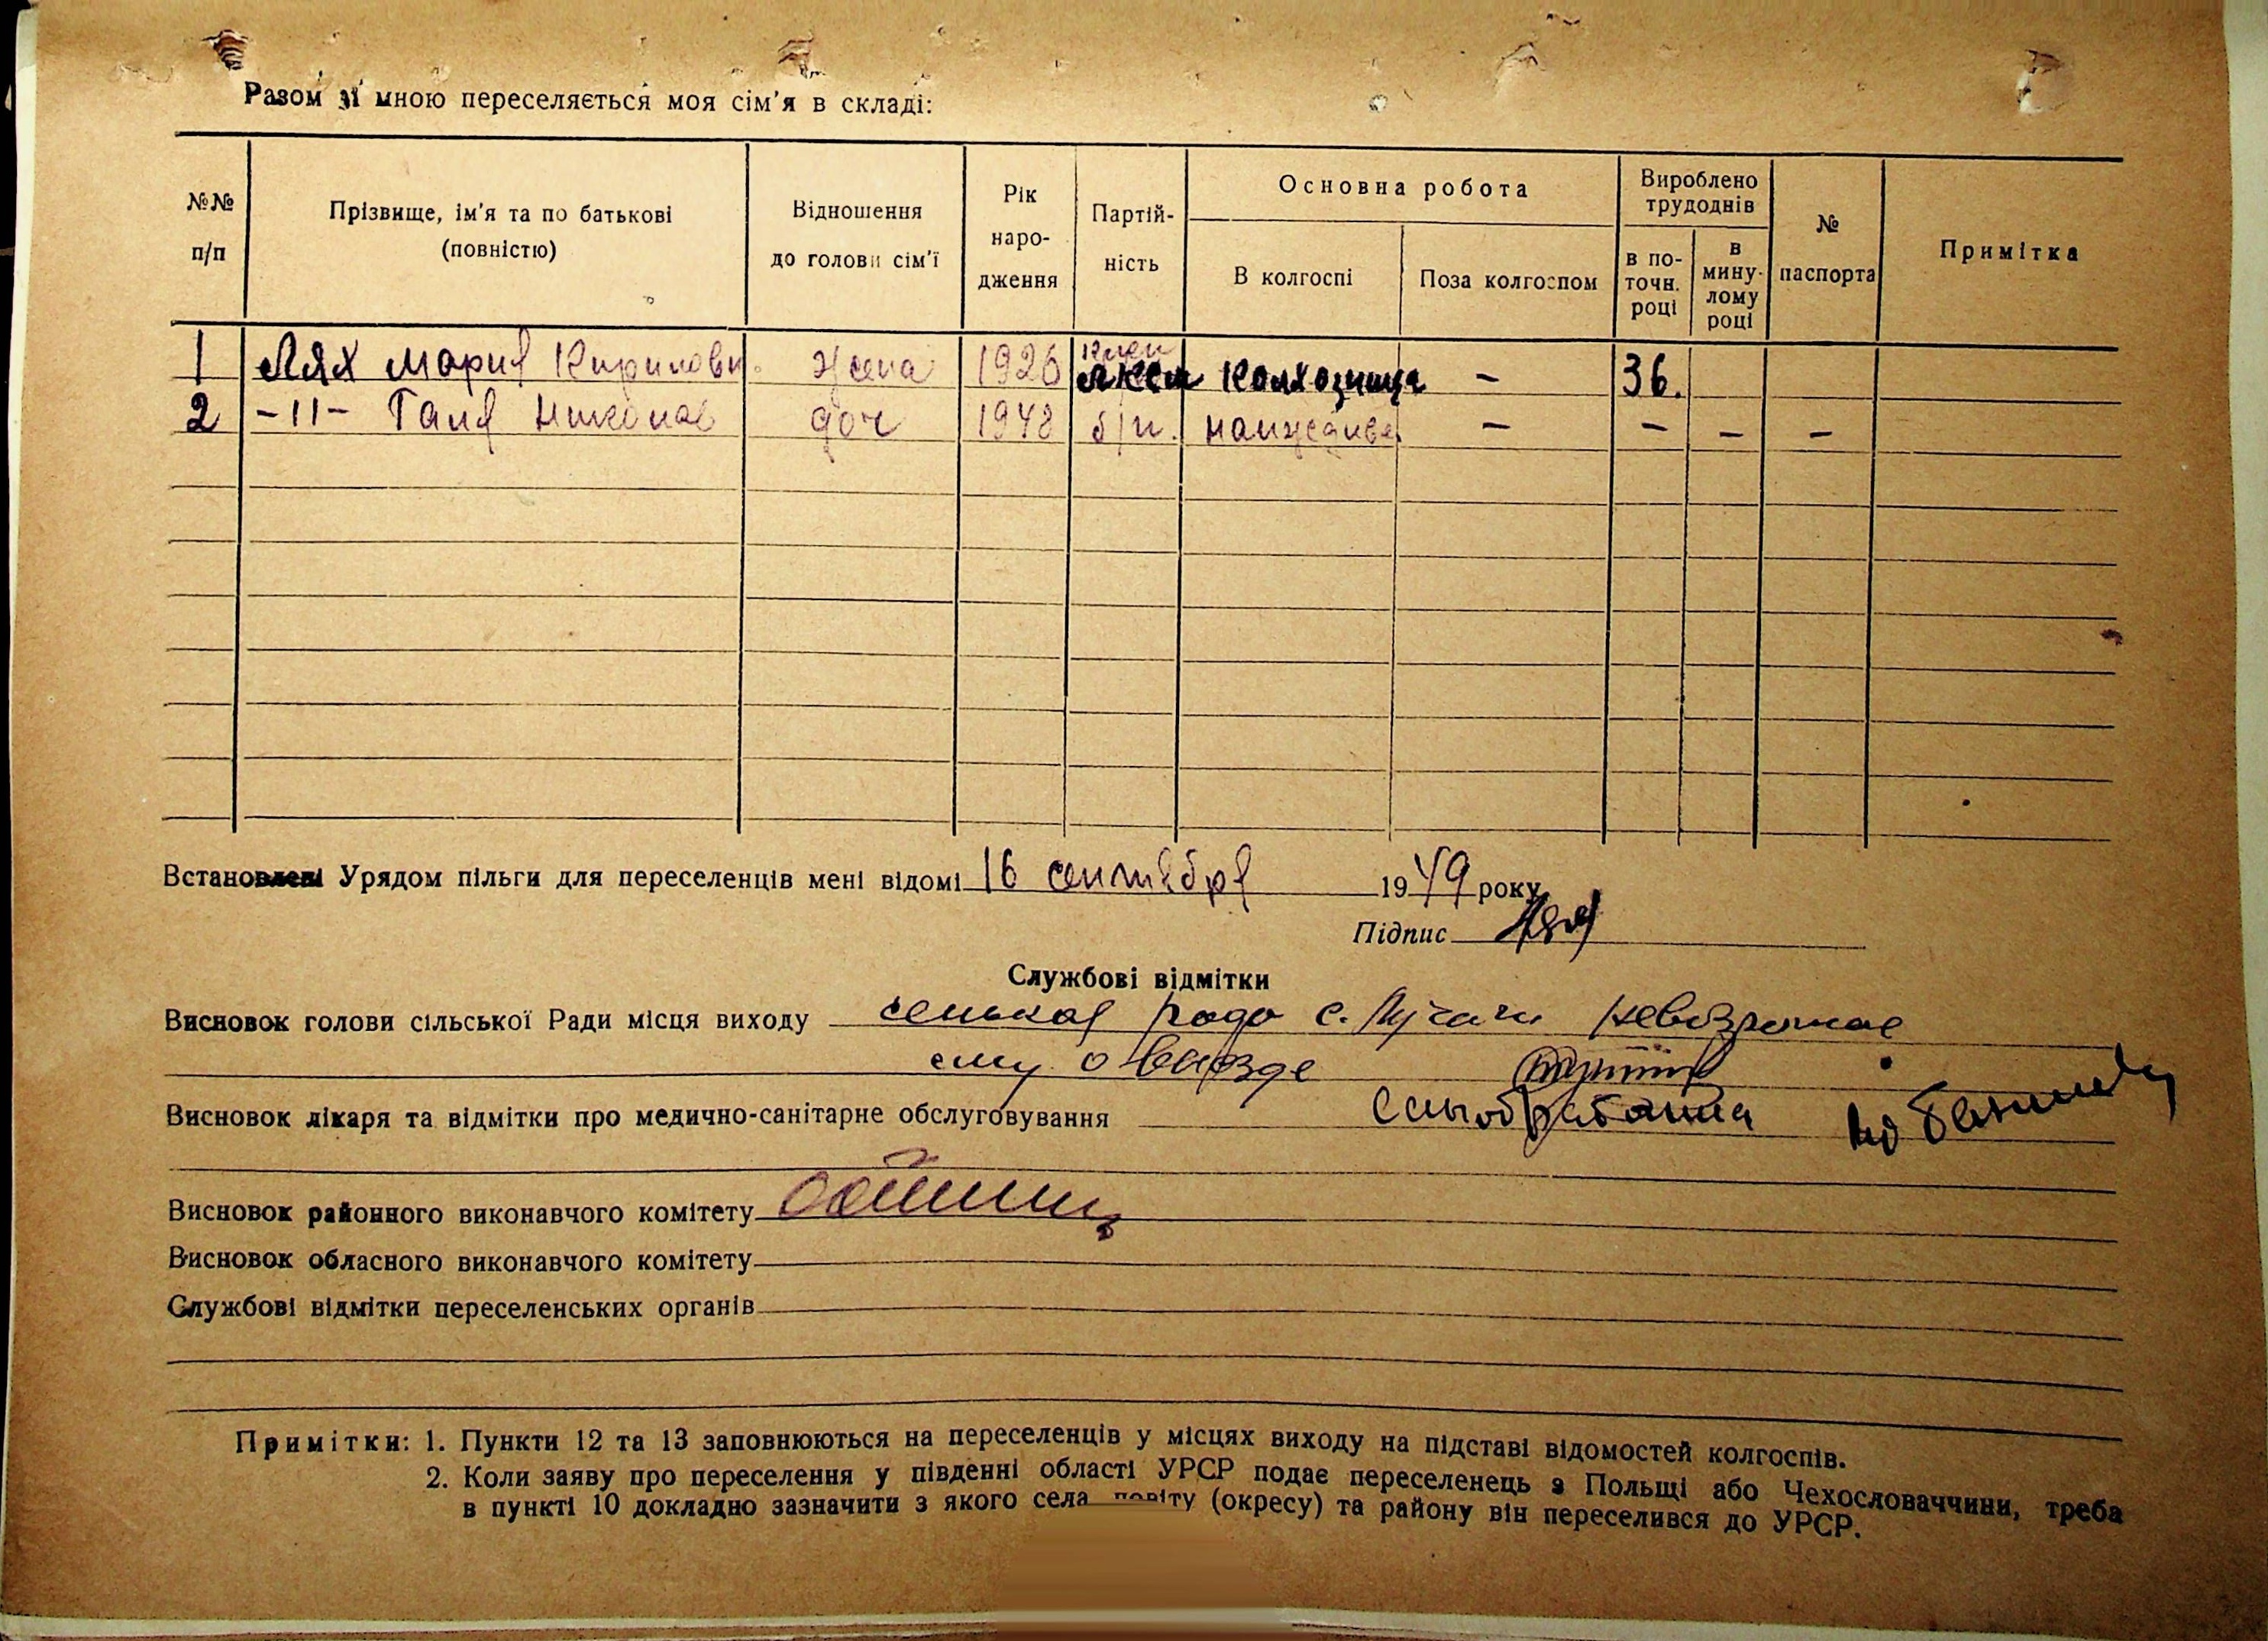 Разом зі мною переселяється моя сім'я в складі:
№№ п/п
Прізвище, ім'я та по батькові (повністю)
Відношення до голови сім'ї
Рік наро-дження
Партій-ність
Основна робота
В колгоспі
Поза колгоспом
Вироблено трудоднів
в по-точн. році
в мину-лому році
№ паспорта
Примітка
1 Лях Мария Кирилови. жена 1926 колхозница - 36.
2 -11- Галя Николае доч 1948 б/п. - - - -
Встановлені Урядом пільги для переселенців мені відомі 16 сентября 1949 року
Підпис
Службові відмітки
Висновок голови сільської Ради місця виходу сельская рада с. невозрожае
ему о виезде
Висновок лікаря та відмітки про медично-санітарне обслуговування
Висновок районного виконавчого комітету
Висновок обласного виконавчого комітету
Службові відмітки переселенських органів
Примітки: 1. Пункти 12 та 13 заповнюються на переселенців у місцях виходу на підставі відомостей колгоспів.
2. Коли заяву про переселення у південні області УРСР подає переселенець з Польщі або Чехословаччини, треба
в пункті 10 докладно зазначити з якого села повіту (окресу) та району він переселився до УРСР.